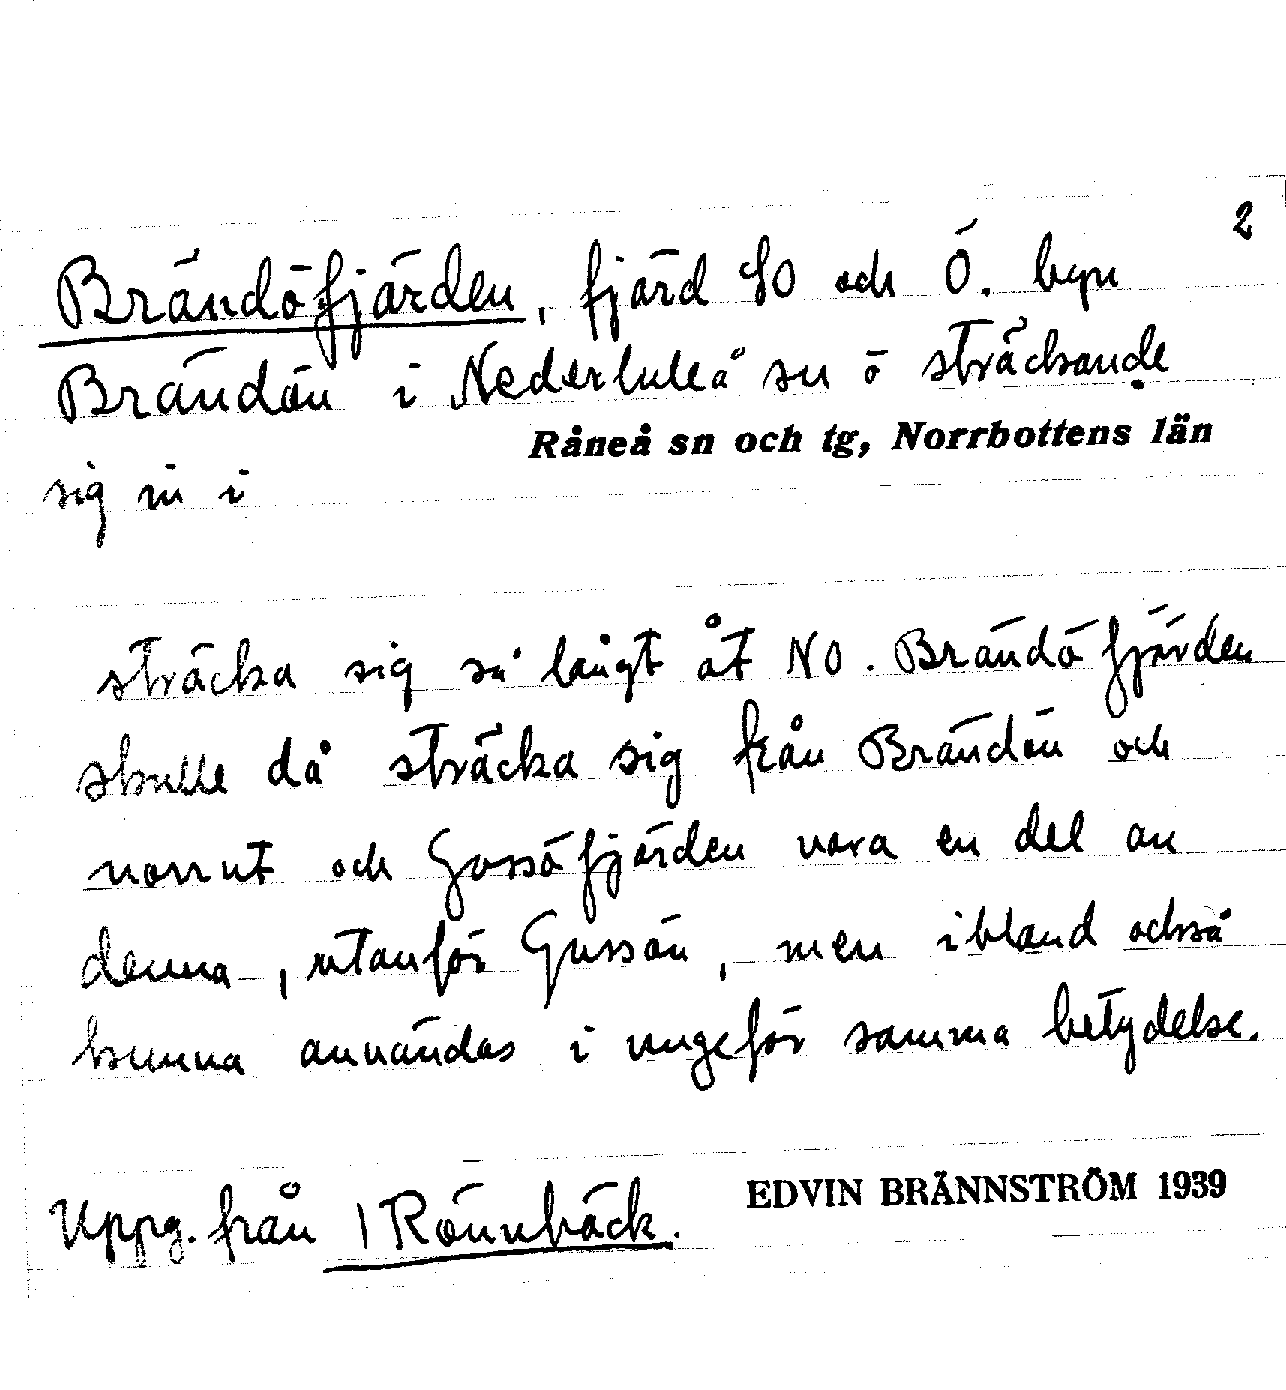 2
Brändöfjärden, fjärd SO och Ö. byn
Brändön i Nederluleå sn ö sträckande
Råneå sn och tg, Norrbottens län
sig in i
sträcka sig så långt åt NO. Brändöfjärden
skulle då sträcka sig från Brändön och
norrut och Gussöfjärden vara en del av
denna, utanför Gussön, men ibland också
kunna användas i ungefär samma betydelse.
Uppg. från 1 Rönnbäck.
EDVIN BRÄNNSTRÖM 1939